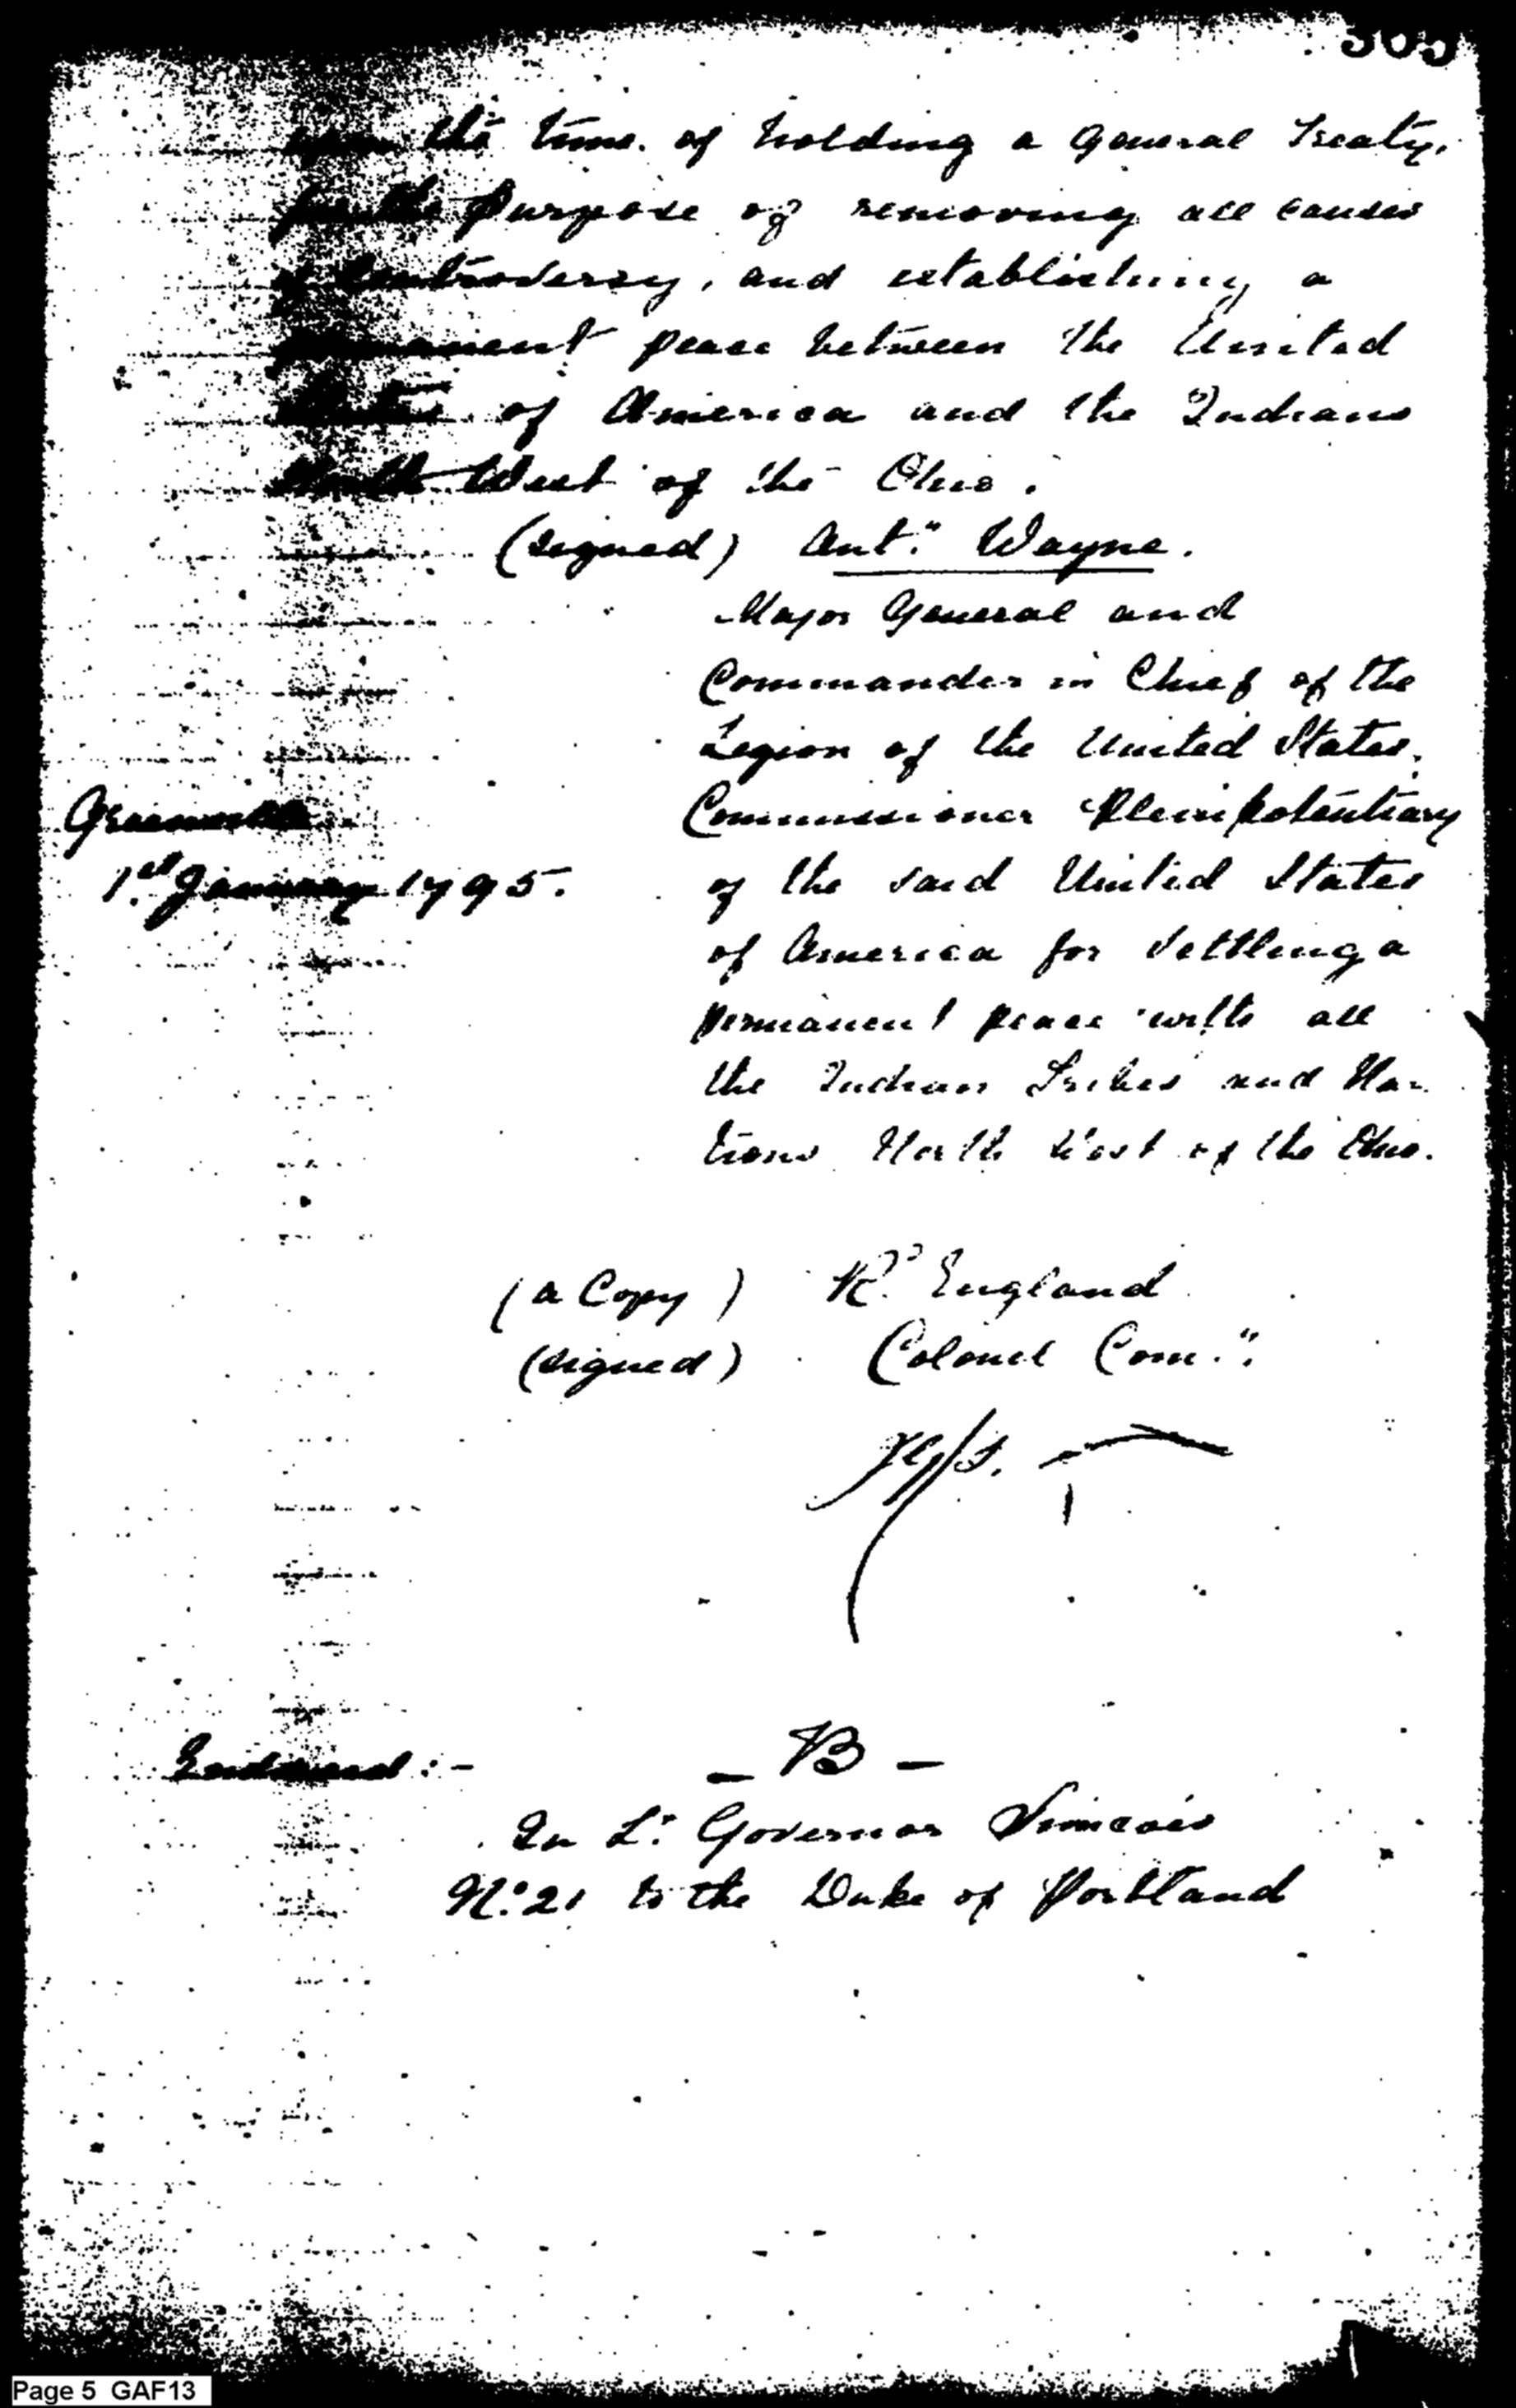 305
upon the time. of holding a General Treaty,
for the Purpose of removing all causes
of Controversy, and establishing a
permanent peace between the United
States of America and the Indians
North West of the Ohio.
(signed) Ant.y Wayne.
Major General and
Commander in Chief of the
Legion of the United States,
Greenville
Commissioner Plenipotentiary
1st January 1795.
of the said United States
of America for settling a
permanent peace with all
the Indian Tribes and Na-
tions North West of the Ohio.
(a Copy) R. England
(signed) Colonel Com.
Endorsed:-
- B -
In Lt. Governor Simcoes
No. 21 to the Duke of Portland
Page 5 GAF13